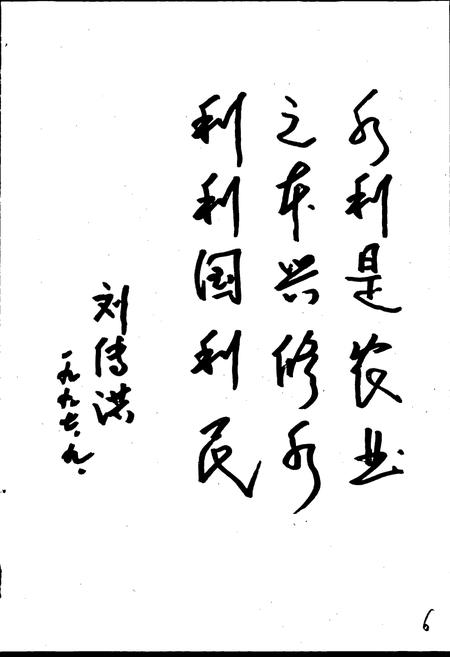 水利是农业
之本兴修水
利利国利民
刘传洪
一九九七.九.
6